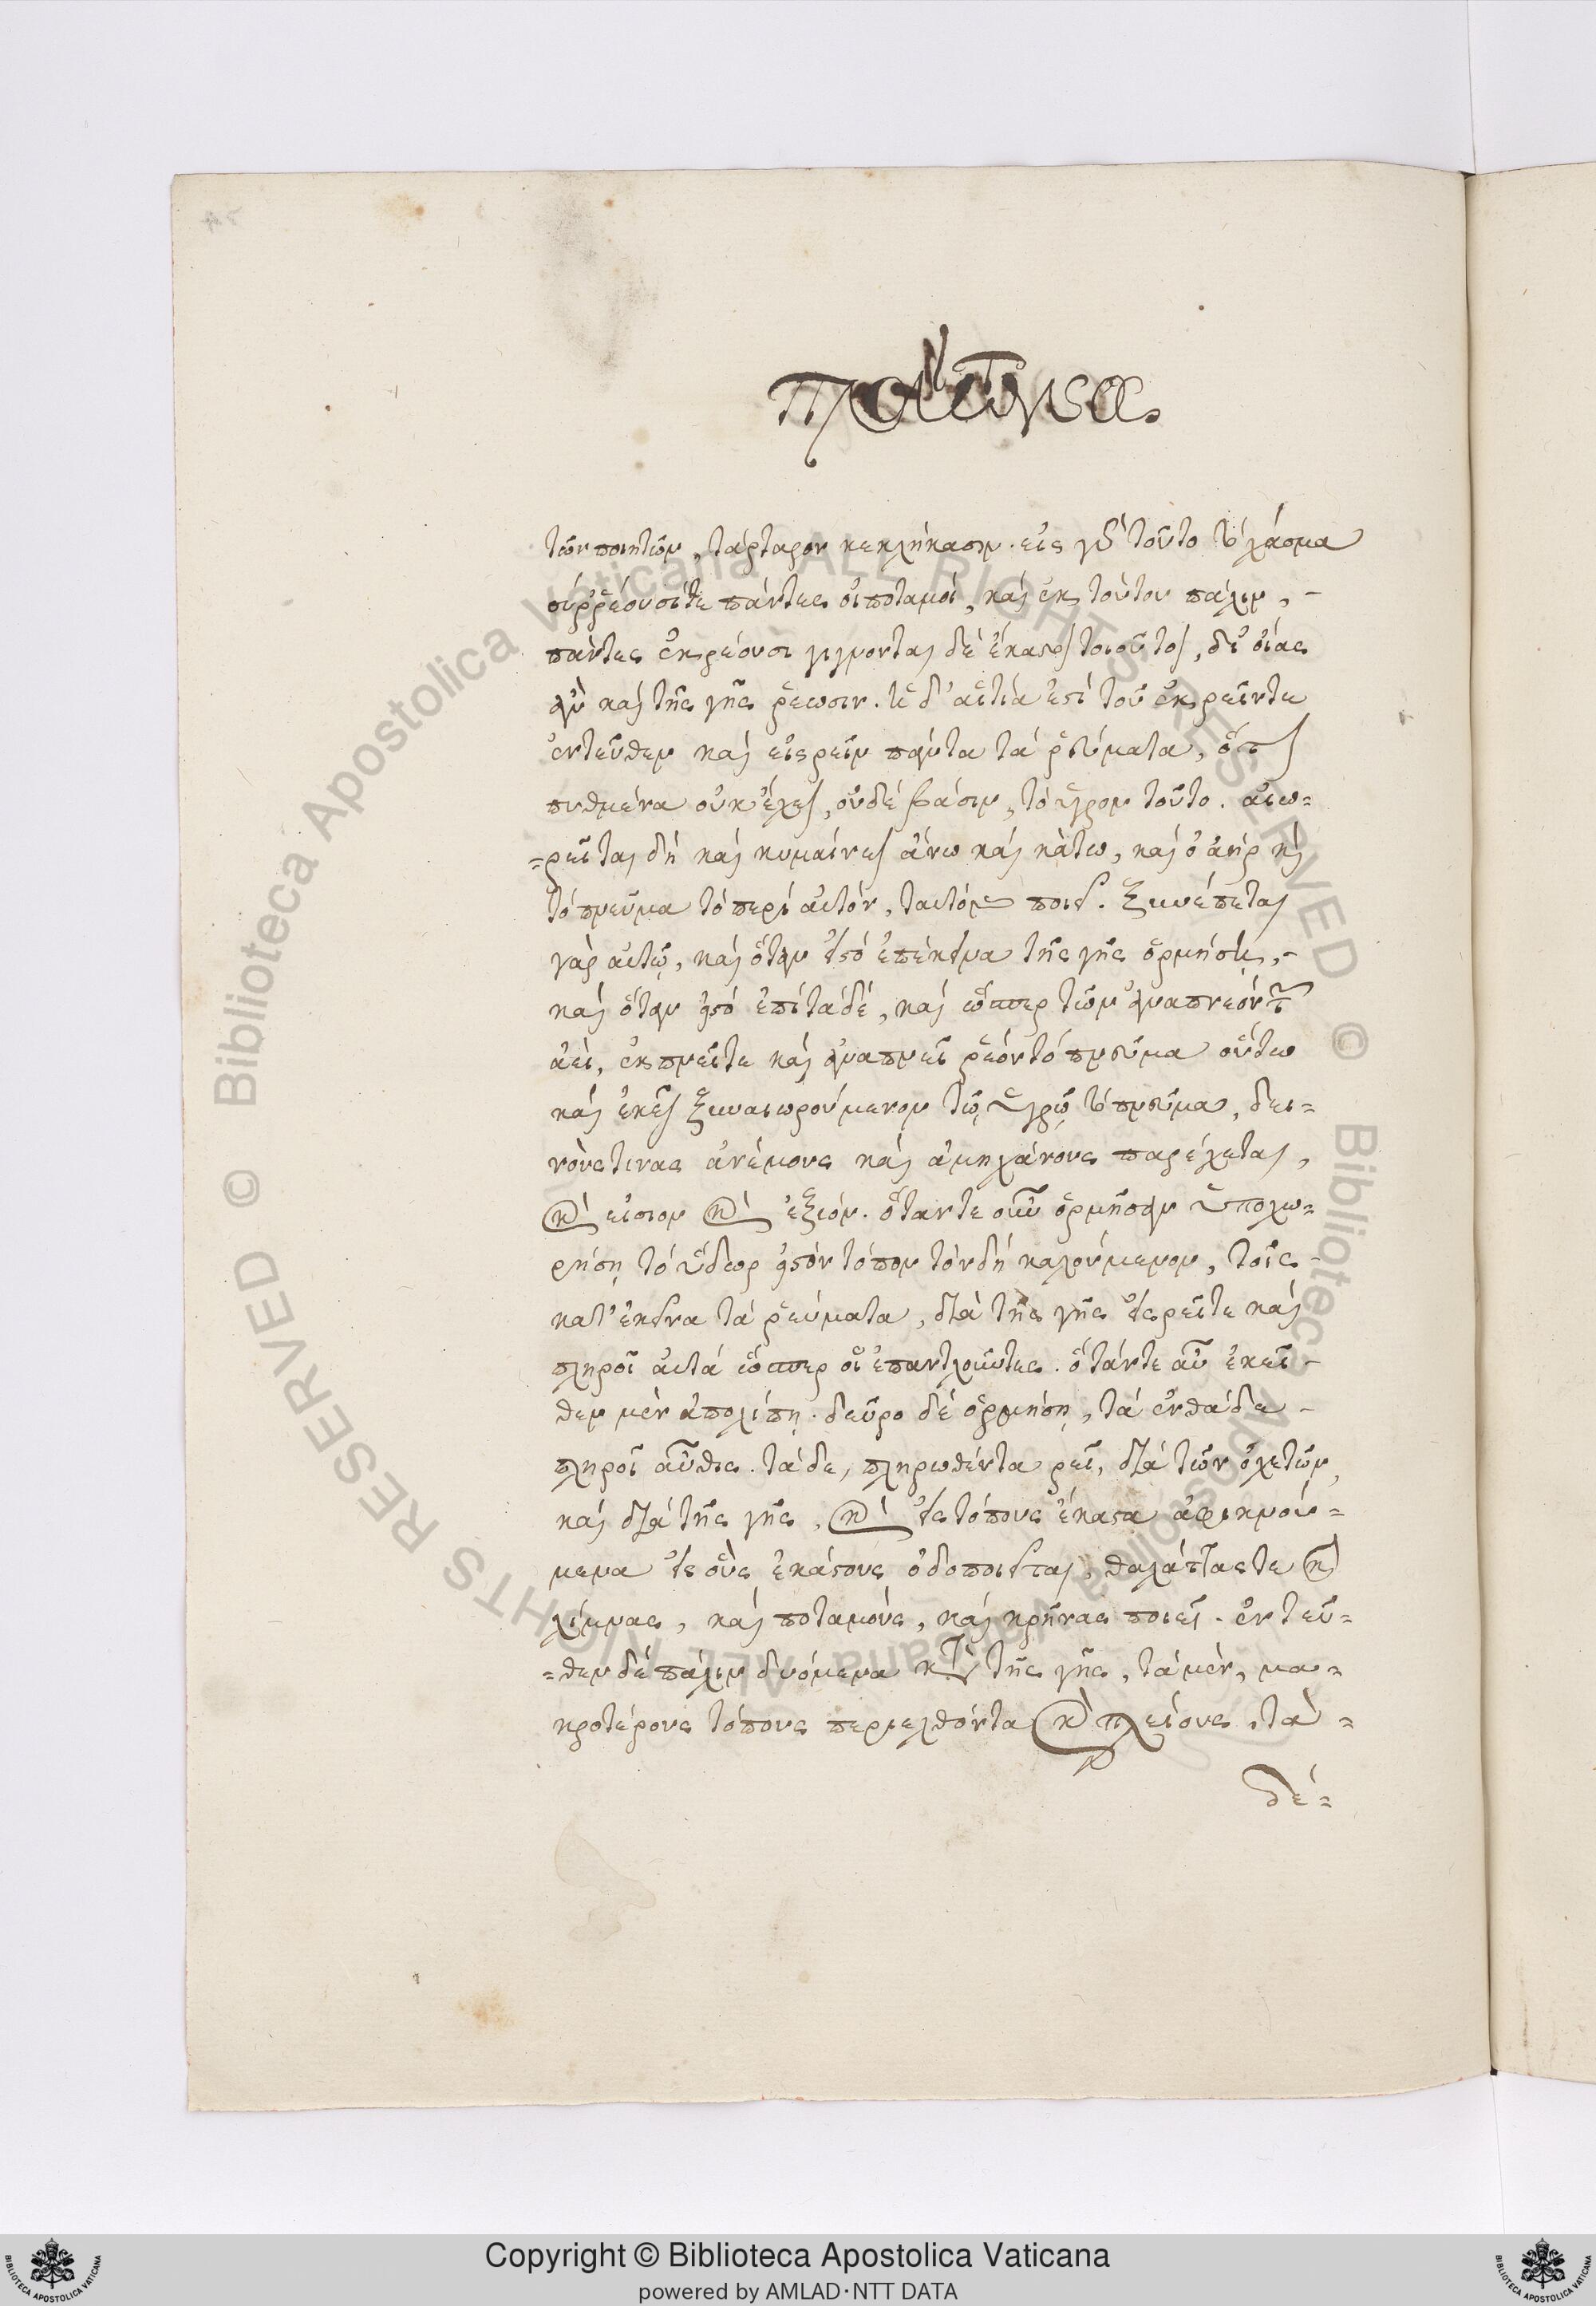 τῶν ποιητῶν, τάρταρον κεκλήκασιν. εἰς γὰρ τοῦτο τὸ χάσμα
συῤῥέουσίτε πάντες οἱ ποταμοί, καὶ ἐκ τούτου πάλιν, -
πάντες ἐκρέουσι γίγνονται δὲ ἕκαστοι τοιοῦτοι, δι' οἵας
ἂν καὶ τῆς γῆς ῥέωσιν. ἡ δ' αἰτία ἐστὶ τοῦ ἐκρεῖντε
ἐντεῦθεν καὶ εἰσρεῖν πάντα τὰ ῥεύματα, ὅτι
πυθμένα οὐκ ἔχει, οὐδὲ βάσιν, τὸ ὑγρὸν τοῦτο. αἰω=
=ρεῖται δὴ καὶ κυμαίνει ἄνω καὶ κάτω, καὶ ὁ ἀὴρ καὶ
τὸ πνεῦμα τὸ περὶ αὐτόν, ταυτὸν ποιεῖ. ξυνέπεται
γὰρ αὐτῷ, καὶ ὅταν εἰς τὸ ἐπέκεινα τῆς γῆς ὁρμήσῃ, -
καὶ ὅταν εἰς τὸ ἐπὶ τάδε, καὶ ὥσπερ τῶν ἀναπνεόντων
ἀεί, ἐκπνεῖτε καὶ ἀναπνεῖ ῥέον τὸ πνεῦμα οὕτω
καὶ ἐκεῖ ξυναιωρούμενον τῷ ὑγρῷ τὸ πνεῦμα, δει=
νούς τινας ἀνέμους καὶ ἀμηχάνους παρέχεται,
καὶ εἰσιὸν καὶ ἐξιόν. ὅταντε οὖν ὁρμῆσαν ὑποχω=
ρήσῃ τὸ ὕδωρ εἰς τὸν τόπον τὸν δὴ καλούμενον, τοῖς -
κατ' ἐκεῖνα τὰ ῥεύματα, διὰ τῆς γῆς εἰσρεῖτε καὶ
πληροῖ αὐτὰ ὥσπερ οἱ ἐπαντλοῦντες. ὅτάντε αὖ ἐκεῖ -
θεν μὲν ἀπολίπῃ. δεῦρο δὲ ὁρμήσῃ, τὰ ἐνθάδε -
πληροῖ αὖθις. τάδε, πληρωθέντα ῥεῖ, διὰ τῶν ὀχετῶν,
καὶ διὰ τῆς γῆς, καὶ εἰς τόπους ἕκαστα ἀφικνού=
μενα εἰς οὓς ἑκάστους ὁδοποιεῖται, θαλάττας τε καὶ
λίμνας, καὶ ποταμούς, καὶ κρήνας ποιεῖ. ἐντεῦ=
=θεν δὲ πάλιν δυόμενα κατὰ τῆς γῆς, τὰ μὲν, μα=
κροτέρους τόπους περιελθόντα καὶ πλείους, τὰ =
δέ=